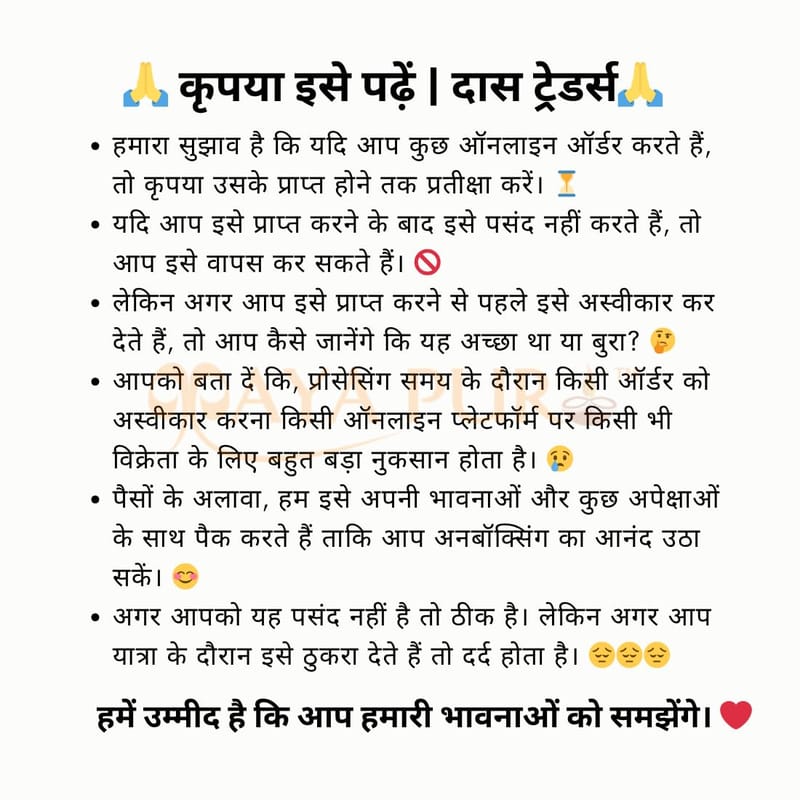 🙏 कृपया इसे पढ़ें | दास ट्रेडर्स🙏
• हमारा सुझाव है कि यदि आप कुछ ऑनलाइन ऑर्डर करते हैं,
तो कृपया उसके प्राप्त होने तक प्रतीक्षा करें। ⏳
• यदि आप इसे प्राप्त करने के बाद इसे पसंद नहीं करते हैं, तो
आप इसे वापस कर सकते हैं। 🚫
• लेकिन अगर आप इसे प्राप्त करने से पहले इसे अस्वीकार कर
देते हैं, तो आप कैसे जानेंगे कि यह अच्छा था या बुरा? 🤔
• आपको बता दें कि, प्रोसेसिंग समय के दौरान किसी ऑर्डर को
अस्वीकार करना किसी ऑनलाइन प्लेटफॉर्म पर किसी भी
विक्रेता के लिए बहुत बड़ा नुकसान होता है। 😢
• पैसों के अलावा, हम इसे अपनी भावनाओं और कुछ अपेक्षाओं
के साथ पैक करते हैं ताकि आप अनबॉक्सिंग का आनंद उठा
सकें। 😊
• अगर आपको यह पसंद नहीं है तो ठीक है। लेकिन अगर आप
यात्रा के दौरान इसे ठुकरा देते हैं तो दर्द होता है। 😔😔😔
हमें उम्मीद है कि आप हमारी भावनाओं को समझेंगे। ❤️